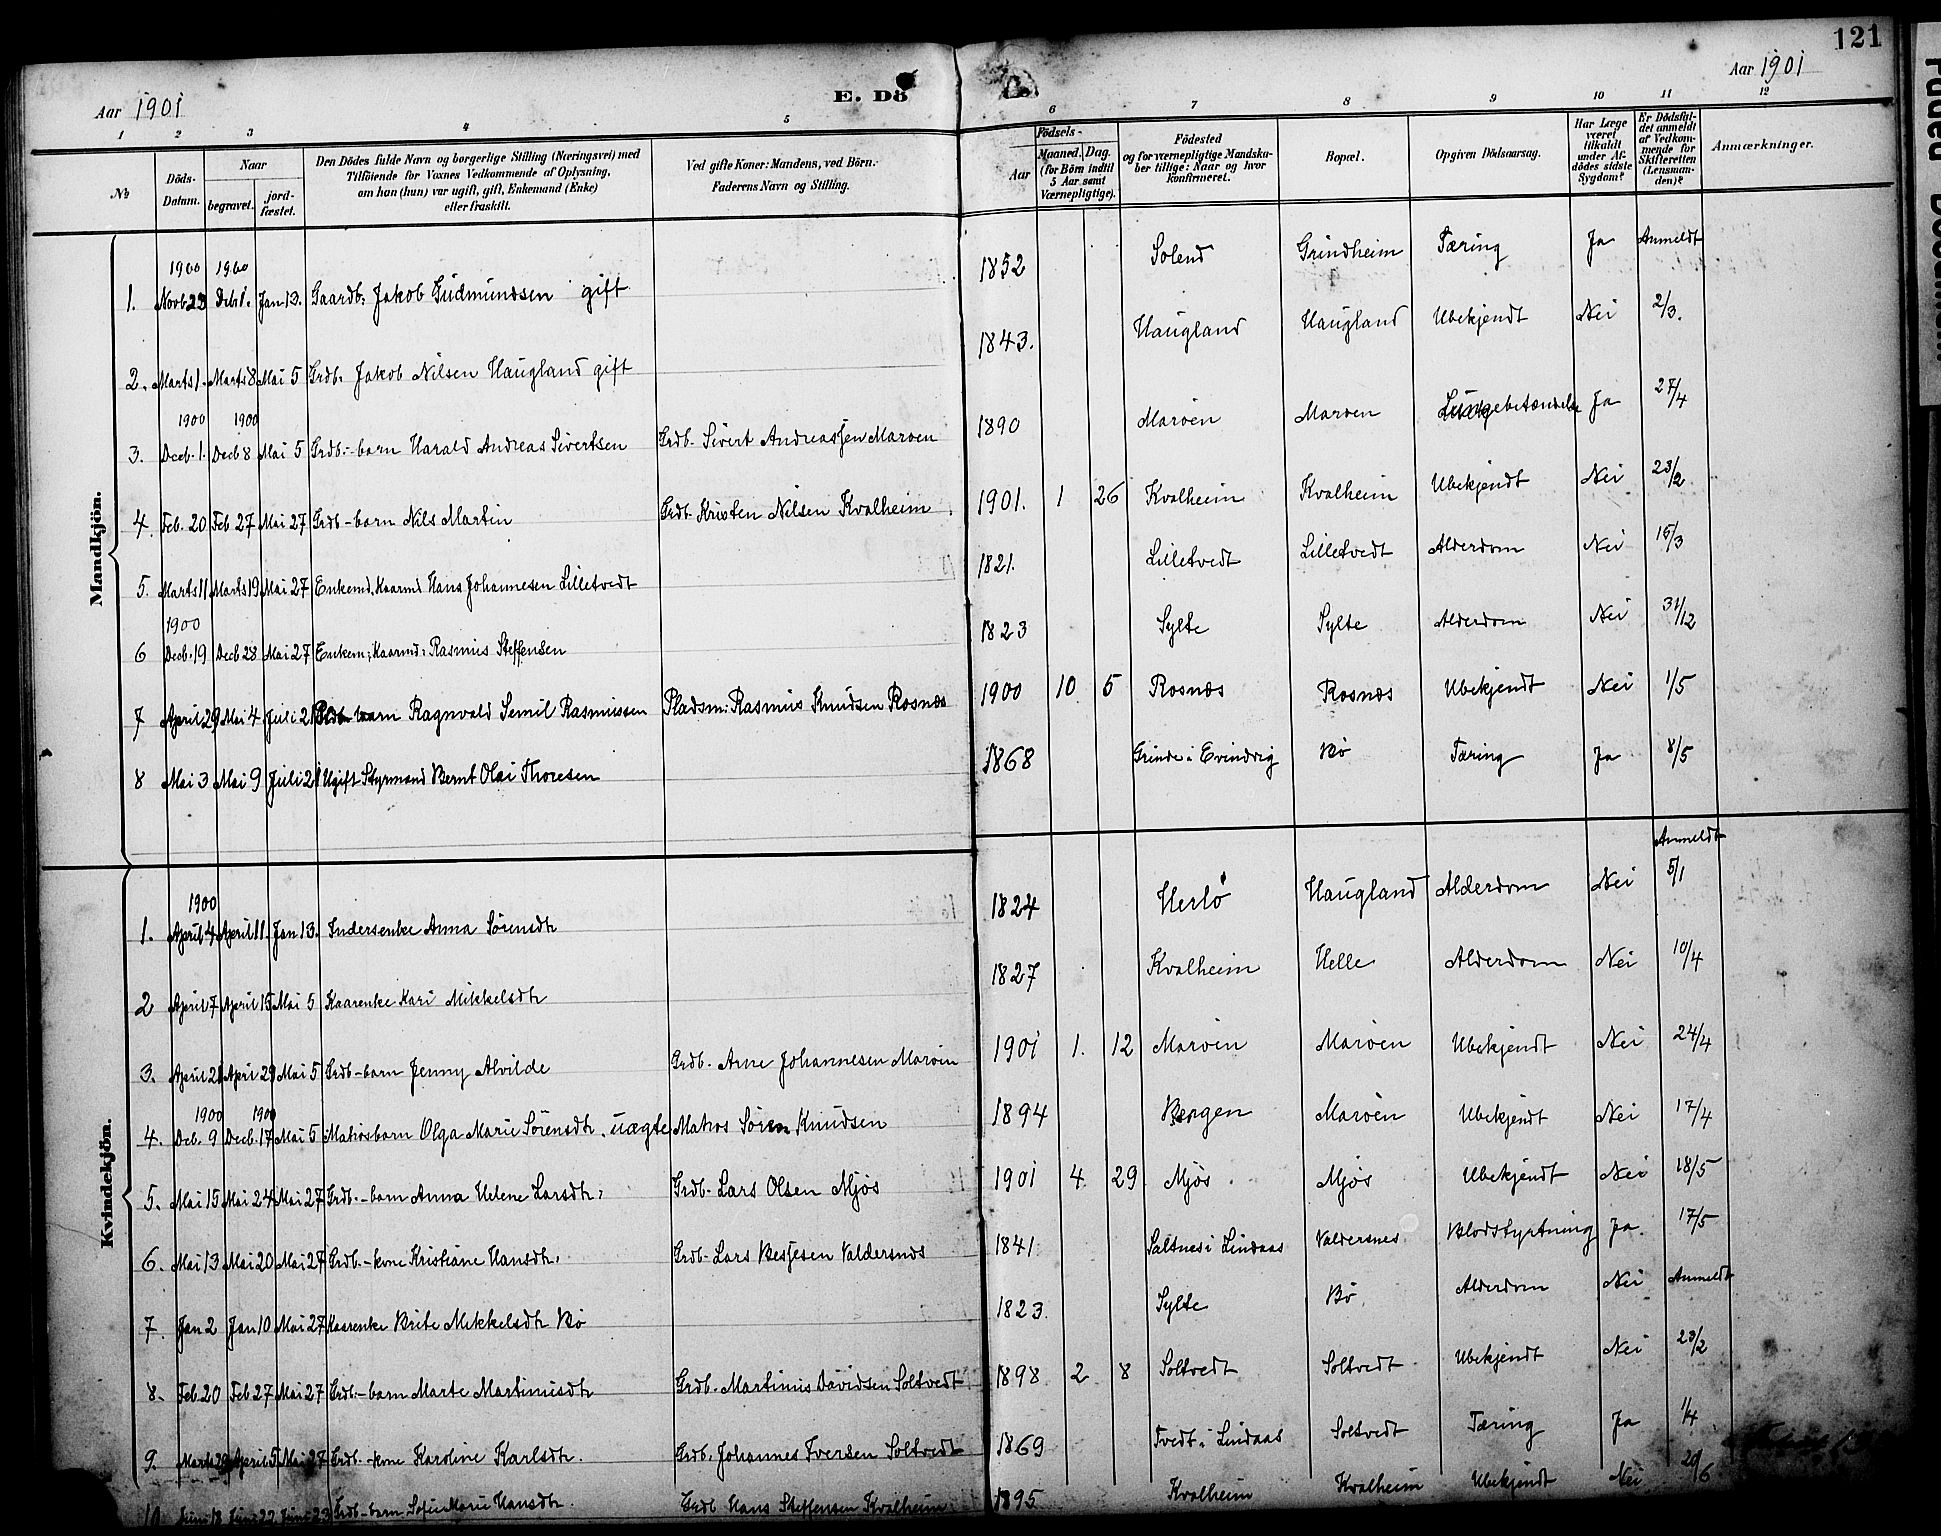 121
Aar 1901
E. Dö
Aar 1901
1 2 3 4 5 6 7 8 9 10 11 12
№
Döds-Datum.
Naar
begravet.
jord-fæstet.
Den Dödes fulde Navn og borgerlige Stilling (Næringsvei) med
Tilföiende for Voxnes Vedkommende af Oplysning,
om han (hun) var ugift, gift, Enkemand (Enke)
eller fraskilt.
Ved gifte Koner: Mandens, ved Börn:
Faderens Navn og Stilling.
Födsels-
Aar
Maaned. Dag.
(for Börn indtil
5 Aar samt
Værnepligtige).
Födested
og for værnepligtige Mandska-
ber tillige: Naar og hvor
konfirmeret.
Bopæl.
Opgiven Dödsaarsag.
Har Læge
været
tilkaldt
under Af-
dödes sidste
Sygdom?
Er Dödsfal-
det anmeldt
af Vedkom-
mende for
Skifteretten
(Lensman-
den)?
Anmærkninger.
Mandkjön.
1900 1900
1. Novb 23 Deb 1. Jan 13. Gaardb: Jakob Gudmundsen gift 1852 Solend Grindheim Tæring Ja Anmeldt
2. Marts 1. Marts 8 Mai 5 Grdb. Jakob Nilsen Haugland gift 1843. Haugland Haugland Ubekjendt Nei 2/3.
1900 1900
3. Decb. 1. Decb 8 Mai 5 Grdb.-barn Harald Andreas Sivertsen Grdb. Sivert Andreassen Maroen 1890 Maroen Maroen Lungebetændelse Ja 27/4
4. Feb. 20 Feb 27 Mai 27 Grdb-barn Nils Martin Grdb. Kristen Nilsen Kvalheim 1901. 1 26 Kvalheim Kvalheim Ubekjendt Nei 23/2
5. Marts 11 Marts 19 Mai 27 Enkemd. Kaarmd Hans Johannesen Lilletvedt 1821. Lilletvedt Lilletvedt Alderdom Nei 15/3
1900
6 Decb. 19 Decb 28 Mai 27 Enkem; Kaarmd: Rasmus Steffensen 1823 Sylte Sylte Alderdom Nei 31/12
7 April 29 Mai 4 Juli 21 barn Ragnvald Semil Rasmussen Pladsm: Rasmus Knudsen Rosnæs 1900 10 5 Rosnæs Rosnæs Ubekjendt Nei 1/5
8 Mai 3 Mai 9 Juli 21 Ugift Styrmand Bernt Olai Thoresen 1868 Grinde i Evindvig Bø Tæring Ja 8/5
Kvindekjön.
1900 Anmeldt
1. April 4 April 11. Jan 13. Indersenke Anna Sørensdtr 1824 Herlø Haugland Alderdom Nei 5/1
2 April 7 April 15 Mai 5 Kaarenke Kari Mikkelsdtr 1827 Kvalheim Helle Alderdom Nei 10/4
3. April 21 April 29 Mai 5 Grdb-barn Jenny Alvilde Grdb. Arne Johannesen Marøen 1901 1. 12 Marøen Marøen Ubekjendt Nei 24/4
1900 1900
4. Dec. 9 Decb. 17 Mai 5 Matrosbarn Olga Marie Sørensdtr. uægte Matros Søren Knudsen 1894 Bergen Marøen Ubekjendt Nei 17/4
5. Mai 15 Mai 24 Mai 27 Grdb.-barn Anna Helene Larsdtr. Grdb. Lars Olsen Mjøs 1901 4 29 Mjøs Mjøs Ubekjendt Nei 18/5
6. Mai 13 Mai 20 Mai 27 Grdb.-kone Kristiane Hansdtr. Grdb. Lars Besjesen Valdersnæs 1841 Saltnes i Lindaas Valdersnes Blodstyrtning Ja 17/5
7. Jan 2 Jan 10 Mai 27 Kaarenke Brite Mikkelsdtr Bø 1823 Sylte Bø Alderdom Nei Anmeldt
8. Feb. 20 Feb 27 Mai 27 Grdb.-barn Marte Martinusdtr Grdb. Martinus Davidsen Soltvedt 1898 2 8 Soltvedt Soltvedt Ubekjendt Nei 23/2
9. Marts 29 April 5 Mai 27 Grdb.-kone Karoline Karlsdtr. Grdb. Johannes Iversen Soltvedt 1869 Tvedt i Lindaas Soltvedt Tæring Ja 1/4
10 Juni 18 Juni 22 Juni 23 Grdb-barn Sofie Marie Hansdtr. Grdb Hans Steffensen Kvalheim 1895 Kvalheim Kvalheim Ubekjendt Nei 20/6